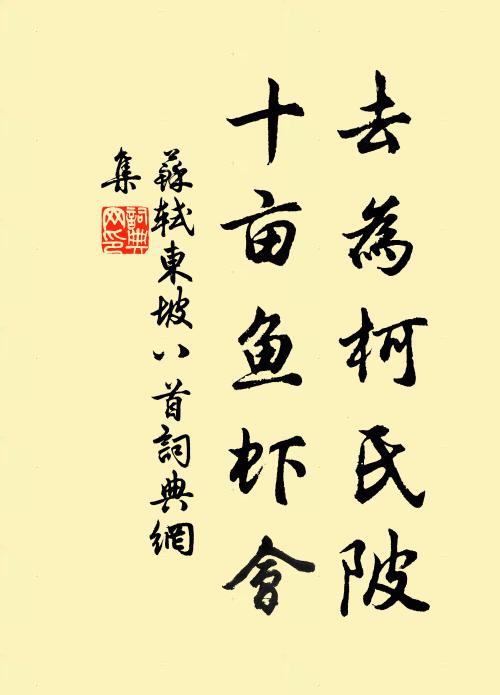 去為柯氏陂
十亩鱼虾會
蘇軾東坡八首詞典網
集
詞典網印